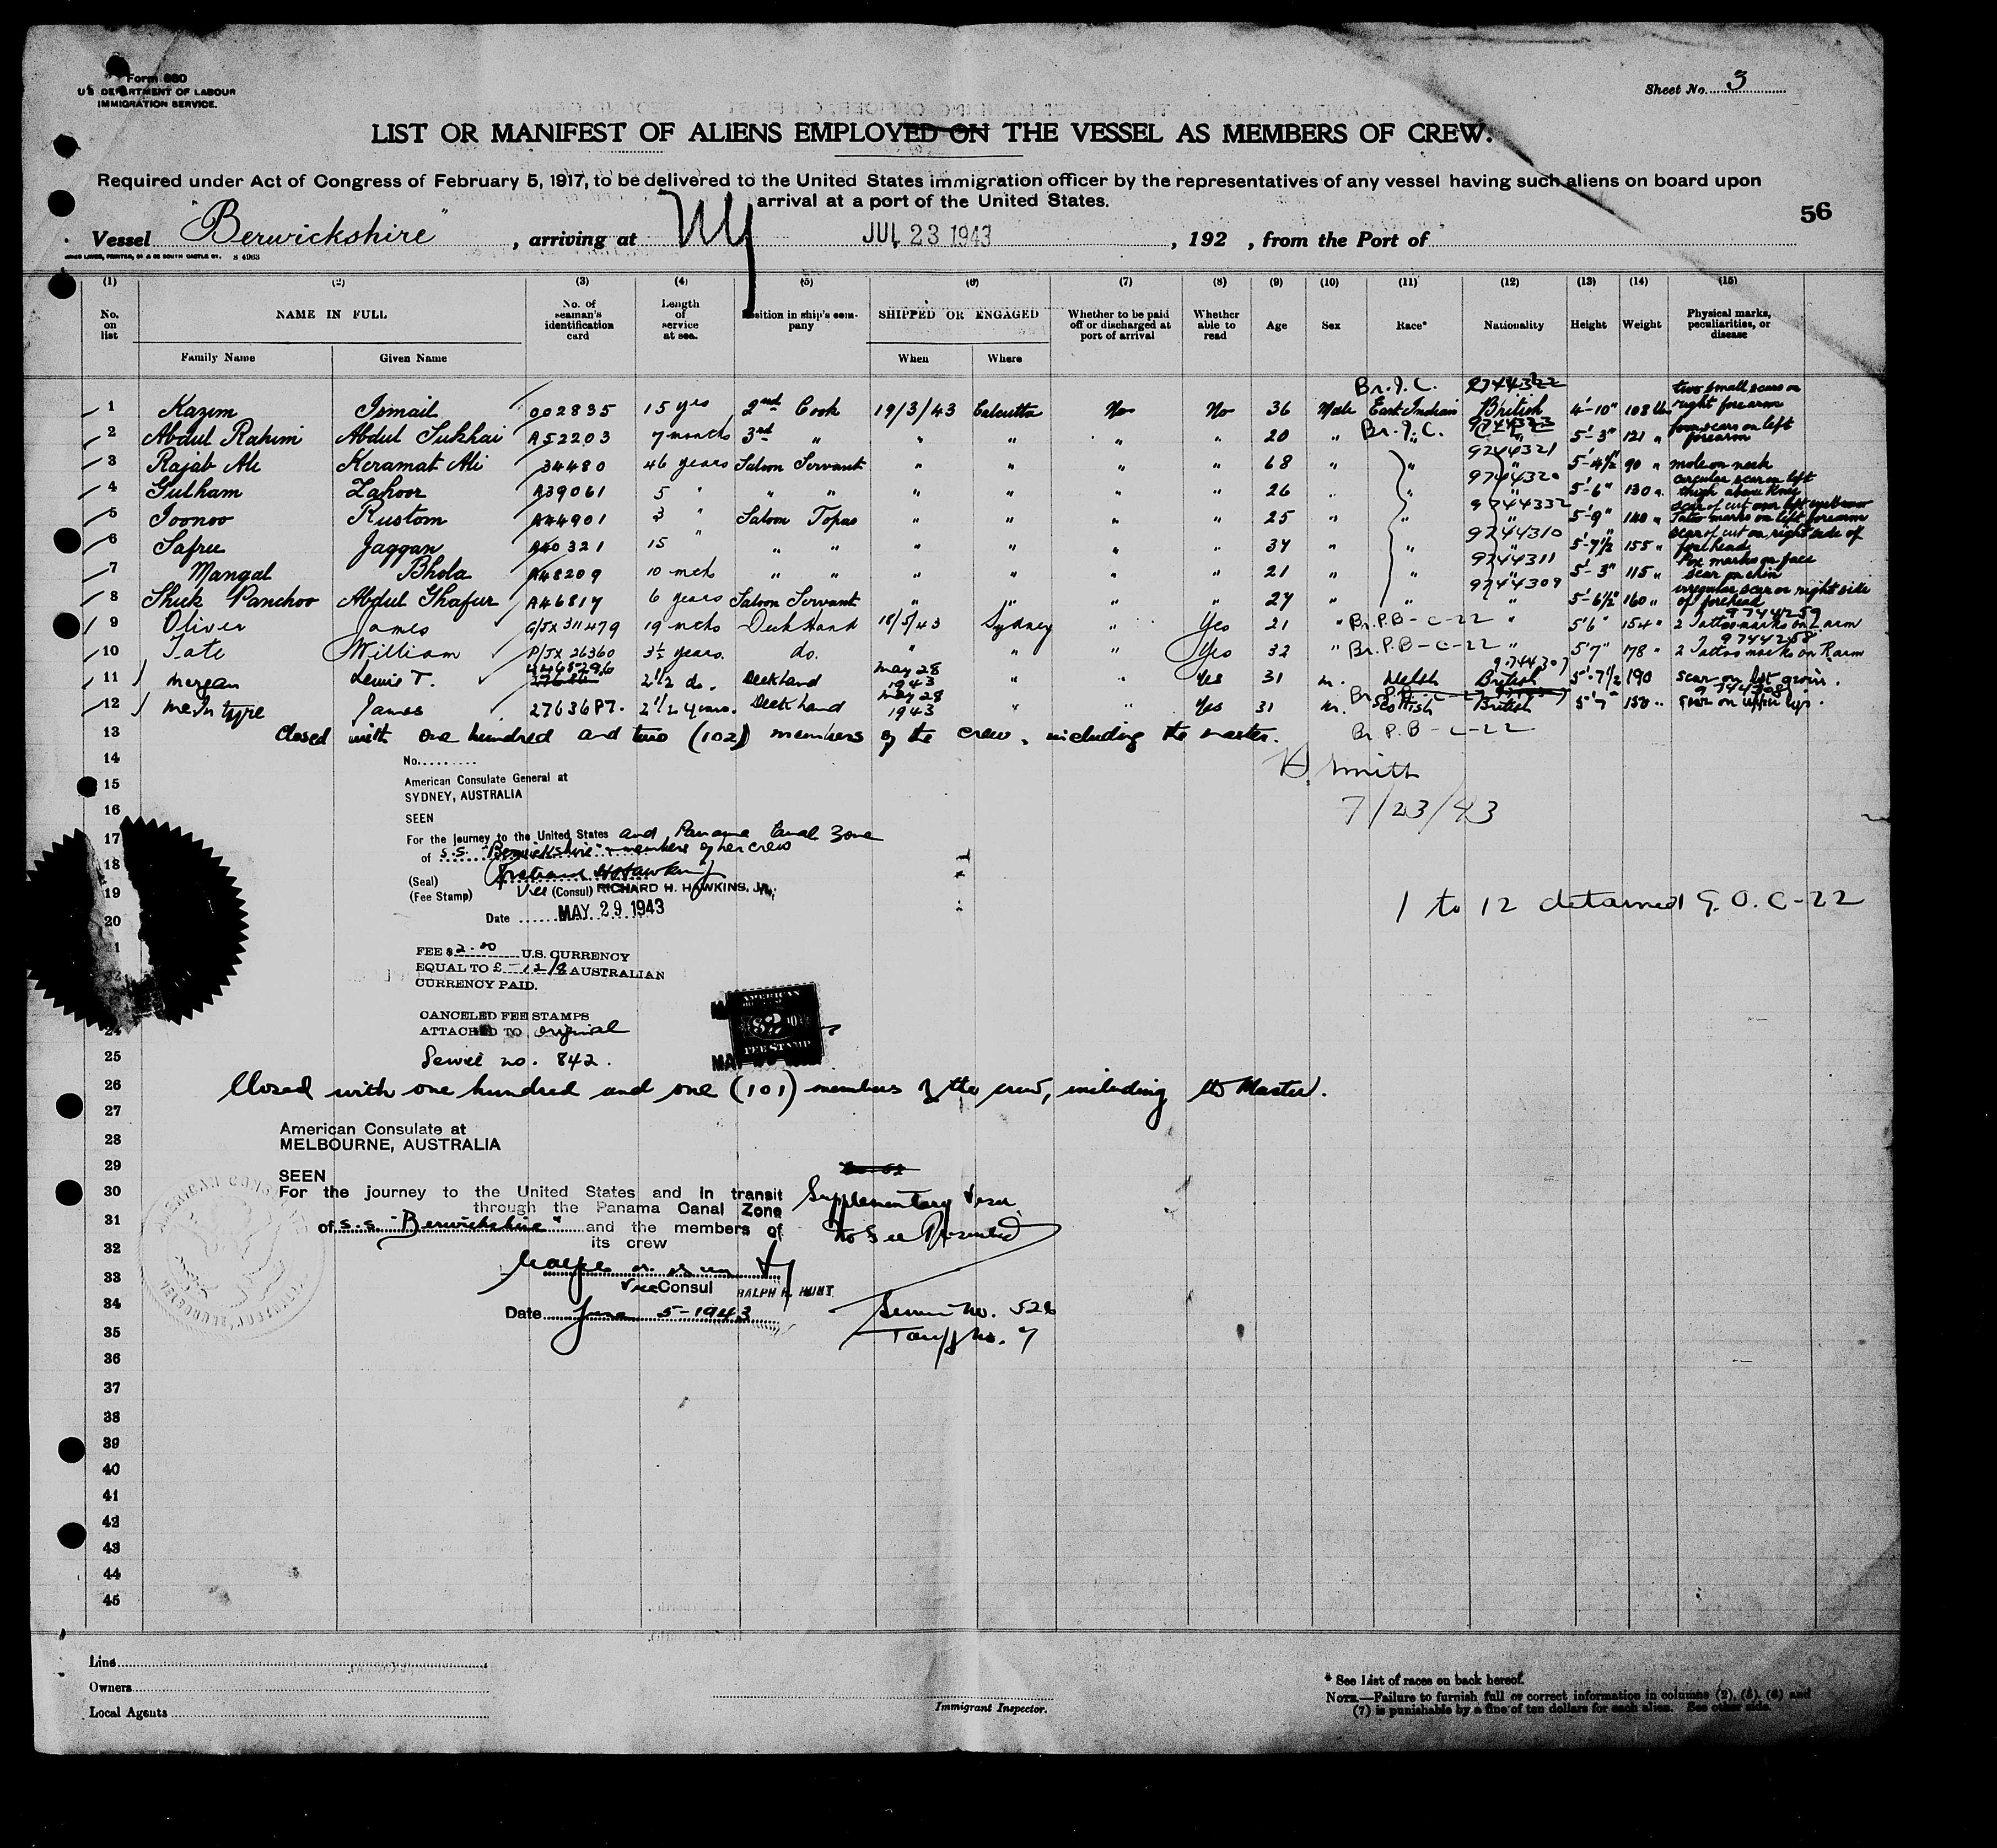 Form 680
U S DEPARTMENT OF LABOUR
IMMIGRATION SERVICE.
Sheet No. 3
LIST OR MANIFEST OF ALIENS EMPLOYED ON THE VESSEL AS MEMBERS OF CREW.
Required under Act of Congress of February 5, 1917, to be delivered to the United States immigration officer by the representatives of any vessel having such aliens on board upon
arrival at a port of the United States.
56
Vessel "Berwickshire", arriving at NY JUL 23 1943, 192 , from the Port of
S 4963
(1) (2) (3) (4) (5) (6) (7) (8) (9) (10) (11) (12) (13) (14) (15)
No. on list NAME IN FULL No. of seaman's identification card Length of service at sea. Position in ship's company SHIPPED OR ENGAGED Whether to be paid off or discharged at port of arrival Whether able to read Age Sex Race* Nationality Height Weight Physical marks, peculiarities, or disease
Family Name Given Name When Where
Br. I. C. 9744322 two small scars on
1 Kazim Ismail 002835 15 yrs 2nd Cook 19/3/43 Calcutta No No 36 Male East Indian British 4'-10" 108 lbs right forearm
Br. I. C. 9744323 four scars on left
2 Abdul Rahim Abdul Sukhai A52203 7 months 3rd " " " " " 20 " " " 5'-3" 121 " forearm
9744321
3 Rajab Ali Keramat Ali 34480 46 years Saloon Servant " " " " 68 " " " 5'-4½" 90 " mole on neck
9744320 circular scar on left
4 Gulham Zahoor A39061 5 " " " " " " " 26 " " " 5'-6" 130 " thigh above knee
9744332 scar of cut over left eyebrow
5 Joonoo Rustom A44901 3 " Saloon Topas " " " " 25 " " " 5'-9" 140 " Tatoo marks on left forearm
9744310 scar of cut on right side of
6 Safree Jaggan A40321 15 " " " " " " " 34 " " " 5'-7½ 155 " forehead
9744311 Pox marks on face
7 Mangal Bhola A48209 10 mths " " " " " " 21 " " " 5'-3" 115 " scar on chin
9744309 irregular scar on right side
8 Shuk Panchoo Abdul Ghafur A46817 6 years Saloon Servant " " " " 27 " " " 5'-6½" 160 " of forehead
9744259
9 Oliver James 311479 19 mths Deck Hand 18/5/43 Sydney " Yes 21 " Br. P.B-C-22 " 5'6" 154 " 2 Tattoo marks on L arm
9744258
10 Tate William P/JX 26360 3½ years. do. " " " Yes 32 " Br. P.B-C-22 " 5'7" 178 " 2 Tattoo marks on R arm
9744307
11 Morgan Lewis T. 2 1/2 do. Deckhand May 28 1943 " " Yes 31 m. Welsh British 5'-7½ 190 scar on left groin.
12 McIntyre James 2763687. 2 1/2 years. Deckhand May 28 1943 " " Yes 31 m. Scottish British 5'7" 150 " scar on upper lip.
13 Closed with one hundred and two (102) members of the crew, including the master. Br. P.B-C-22
14
No.
Smith
15
American Consulate General at
SYDNEY, AUSTRALIA
7/23/43
16
SEEN
17
For the journey to the United States and Panama Canal Zone
18
of s.s. "Berwickshire" members of her crew
(Seal)
19
(Fee Stamp) Vice (Consul) RICHARD H. HAWKINS, JR.
1 to 12 detained G. O. C-22
20
Date MAY 29 1943
21
FEE $2.00 U.S. CURRENCY
EQUAL TO £ -12/8 AUSTRALIAN
CURRENCY PAID.
CANCELED FEE STAMPS
24
ATTACHED TO original
AMERICAN
$2.00
FEE STAMP
25
Service no. 842.
26 Closed with one hundred and one (101) members of the crew, including the Master.
27
28
American Consulate at
MELBOURNE, AUSTRALIA
29
SEEN
30
For the journey to the United States and in transit
through the Panama Canal Zone
Supplementary Visa
31
of s.s. "Berwickshire" and the members of
its crew
No Fee Prescribed
32
33
Vice Consul RALPH H. HUNT
34
Date June 5-1943
Service No. 526
35
Tariff No. 7
36
37
38
39
40
41
42
43
44
45
Line
Owners
Local Agents
Immigrant Inspector.
* See List of races on back hereof.
NOTE.—Failure to furnish full or correct information in columns (2), (5), (6) and
(7) is punishable by a fine of ten dollars for each alien. See other side.